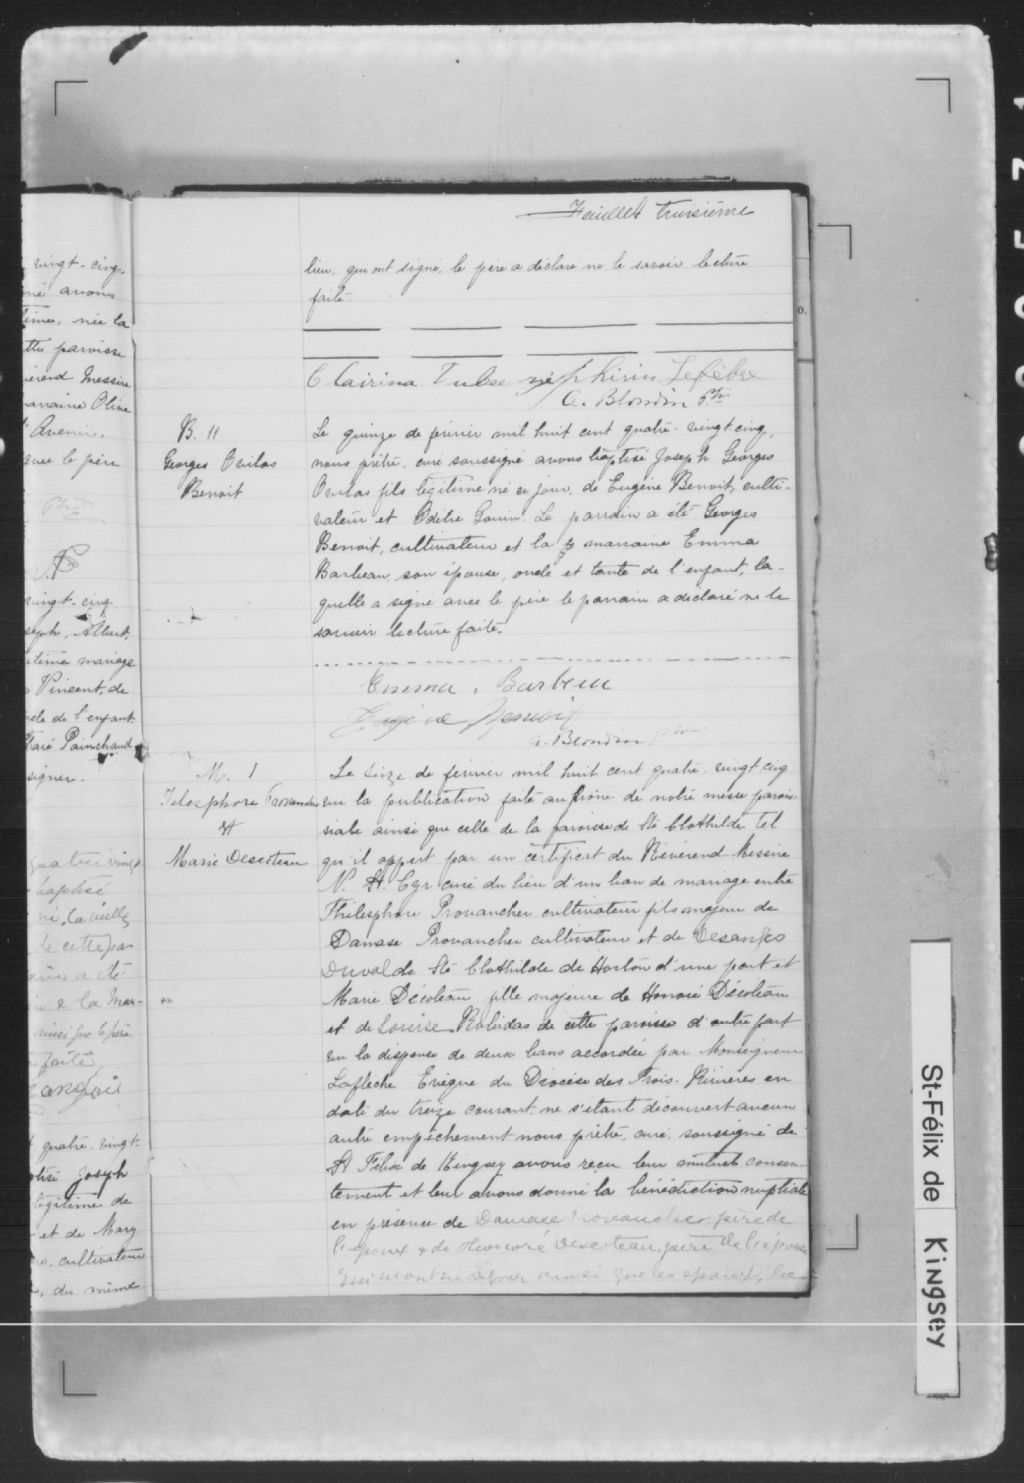 Feuillet troisième
lieu, qui ont signé, le père a déclaré ne le savoir lecture
faite.
Clairina Zéphirin Lefebvre
A. Blondin Ptre
B. 11
Georges Ovilas
Benoit
Le quinze de février mil huit cent quatre-vingt cinq,
nous prêtre, curé soussigné avons baptisé Joseph Georges
Ovilas fils légitime né ce jour, de Eugène Benoit, culti-
vateur et Odélie Gouin. Le parrain a été Georges
Benoit, cultivateur et la marraine Emma
Barbeau son épouse, oncle et tante de l'enfant, la-
quelle a signé avec le père le parrain a déclaré ne le
savoir lecture faite.
Emma Barbeau
Eugène Benoit
A. Blondin Ptre
M. 1
Télesphore Provancher
et
Marie Descoteau
Le seize de février mil huit cent quatre-vingt cinq
vu la publication faite au prône de notre messe parois-
siale ainsi que celle de la paroisse de Ste Clothilde tel
qu'il appert par un certificat du Révérend Messire
N. H. Cyr curé du lieu d'un ban de mariage entre
Thélesphore Provancher cultivateur fils majeur de
Damase Provancher cultivateur et de Desanges
Duval de Ste Clothilde de Horton d'une part et
Marie Décoteau fille majeure de Honoré Décoteau
et de Louise Robidas de cette paroisse d'autre part
vu la dispense de deux bans accordée par Monseigneur
Lafleche Evêque du Diocèse des Trois-Rivières en
date du treize courant, ne s'étant découvert aucun
autre empêchement nous prêtre, curé, soussigné de
St Félix de Kingsey avons reçu leur mutuel consen-
tement et leur avons donné la bénédiction nuptiale
en présence de Damase Provancher, père de
l'époux & de Honoré Descoteau, père de l'épouse
qui n'ont su signer ainsi que les époux, lec-
vingt-cinq
né avons
née la
paroisse
Messire
marraine Olive
Avenir.
avec le père
vingt-cinq
Albert,
mariage
Vincent, de
de l'enfant
Painchaud
signer.
baptisé
né la veille
de cette pa
a été
& la Mar-
ainsi que le père
faite
quatre-vingt
Joseph
légitime de
et de Mary
cultivateur
du même
St-Félix de Kingsey